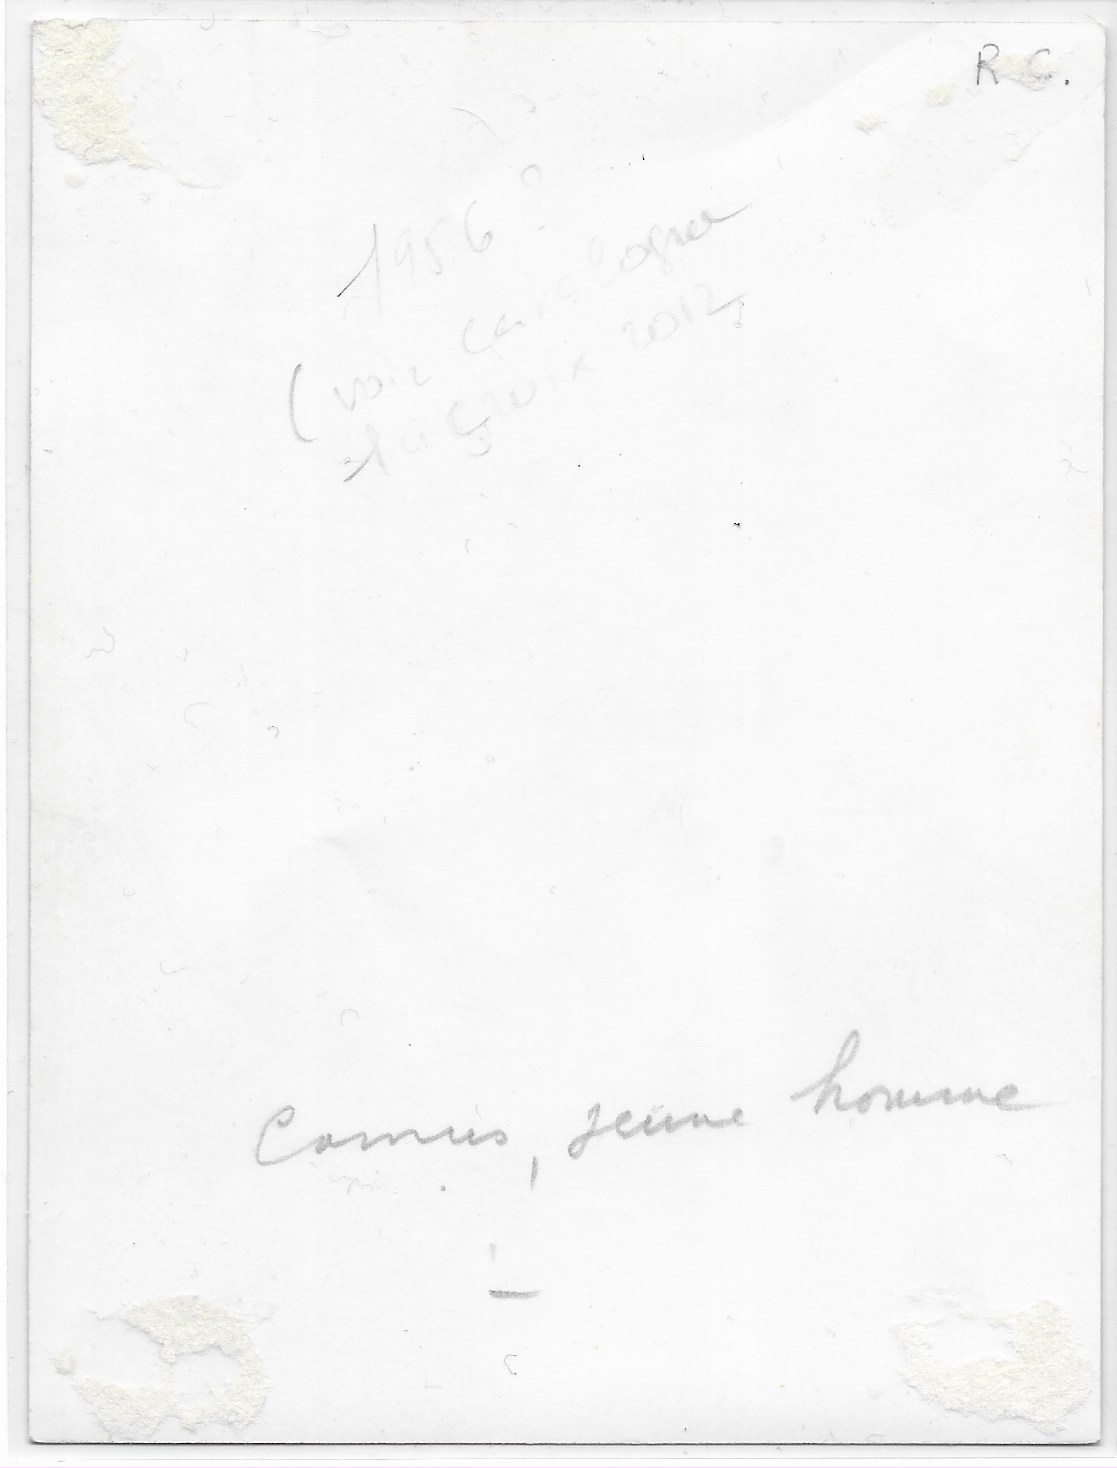 R C.
1956 ?
(voir catalogue
2012
Camus, jeune homme